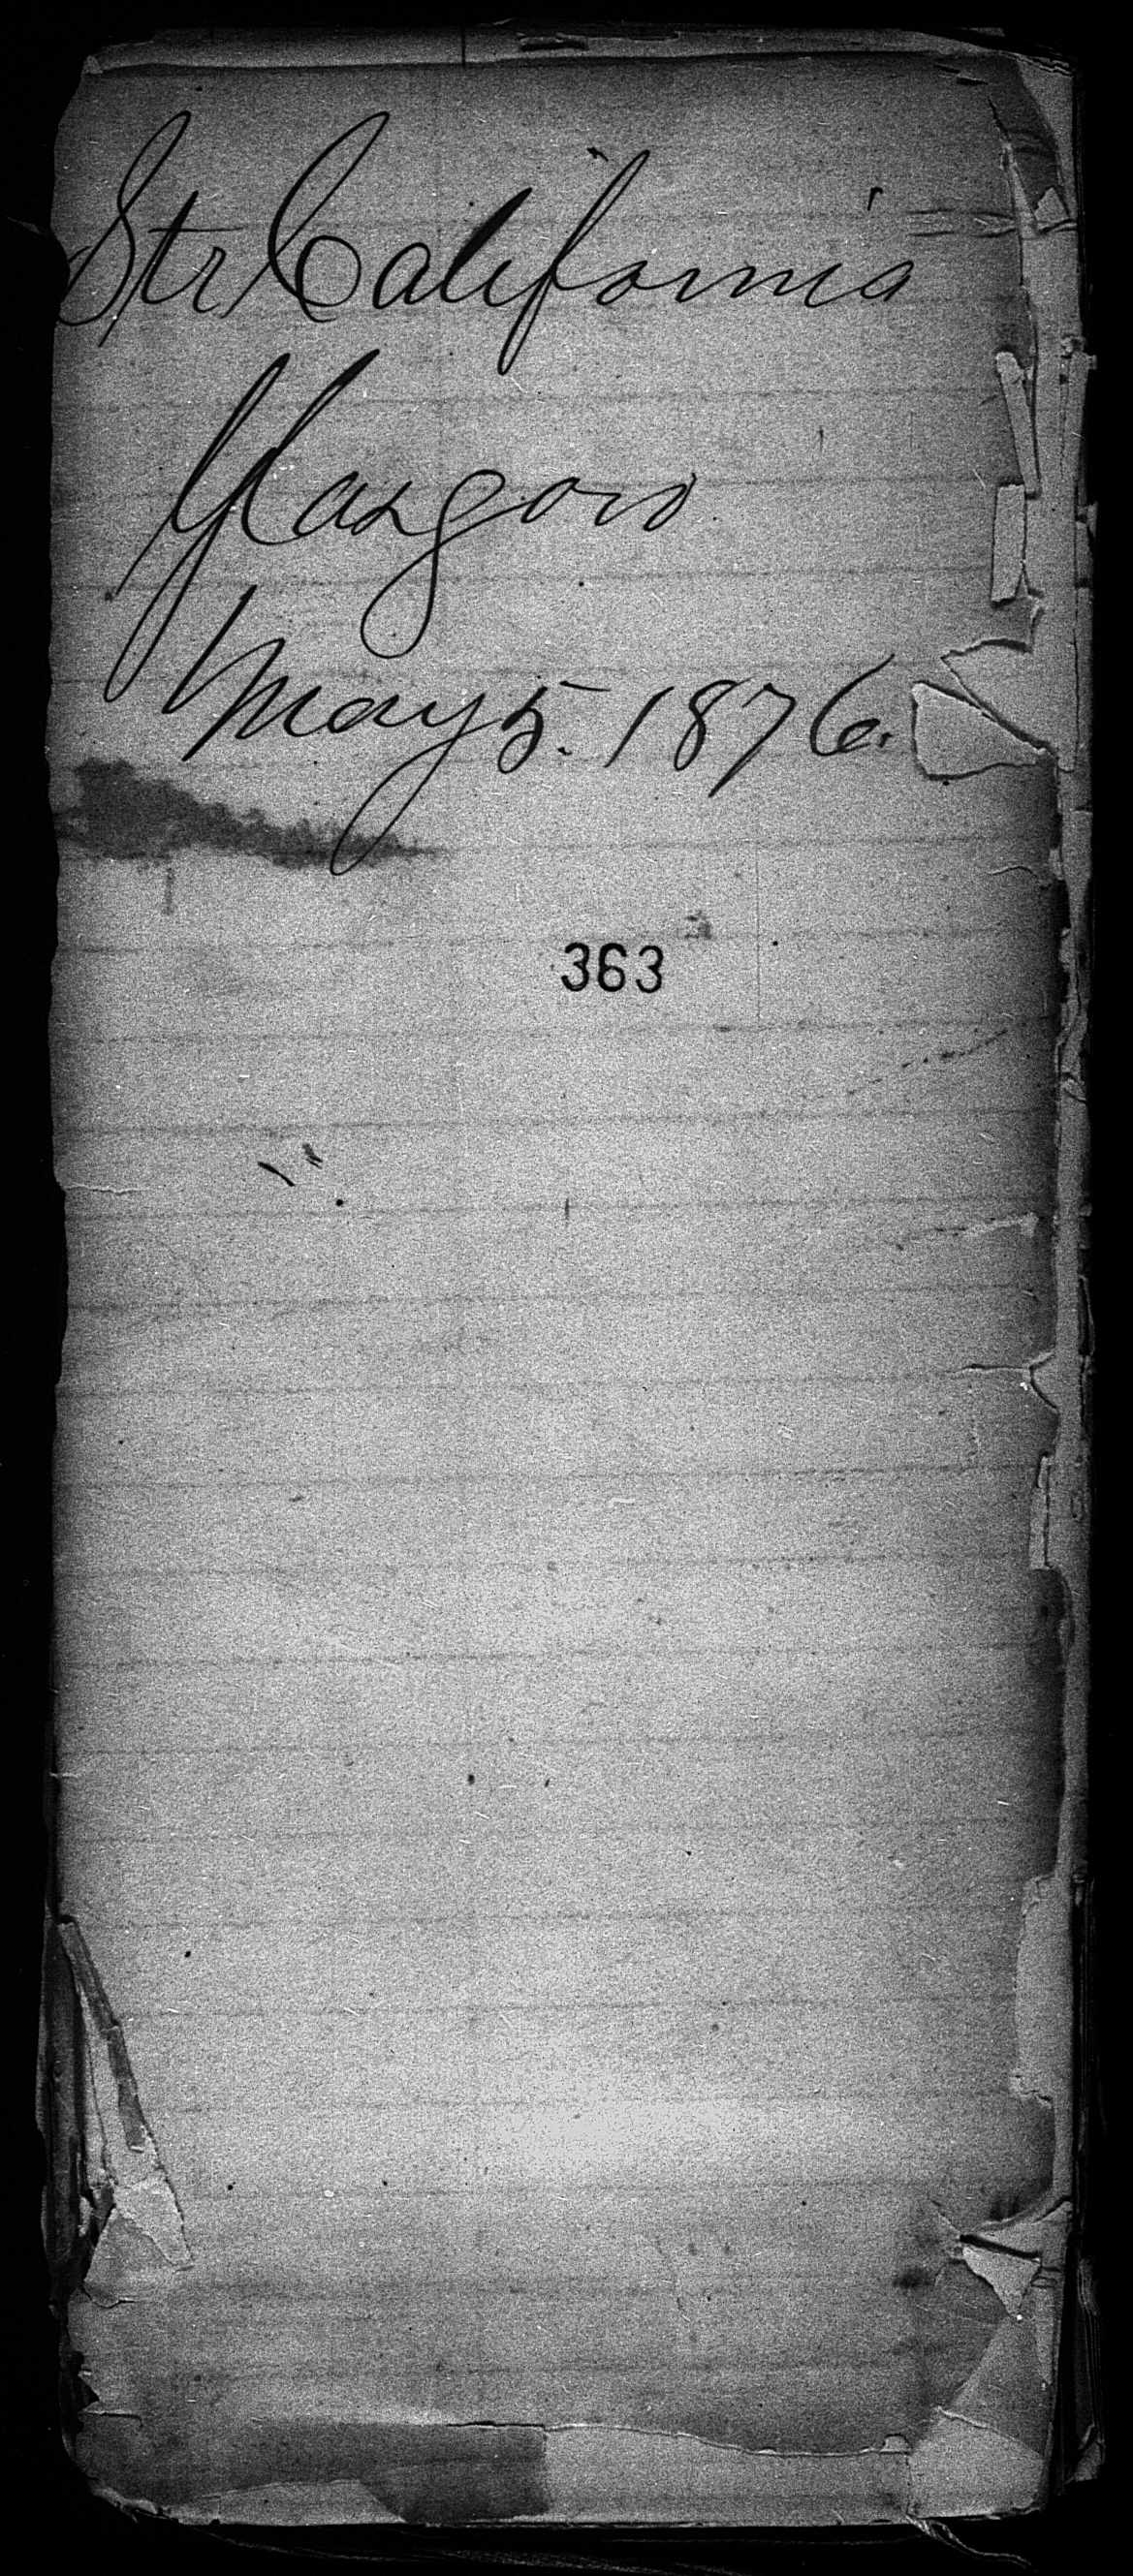 Str California
Glasgow
May 5. 1876.
363